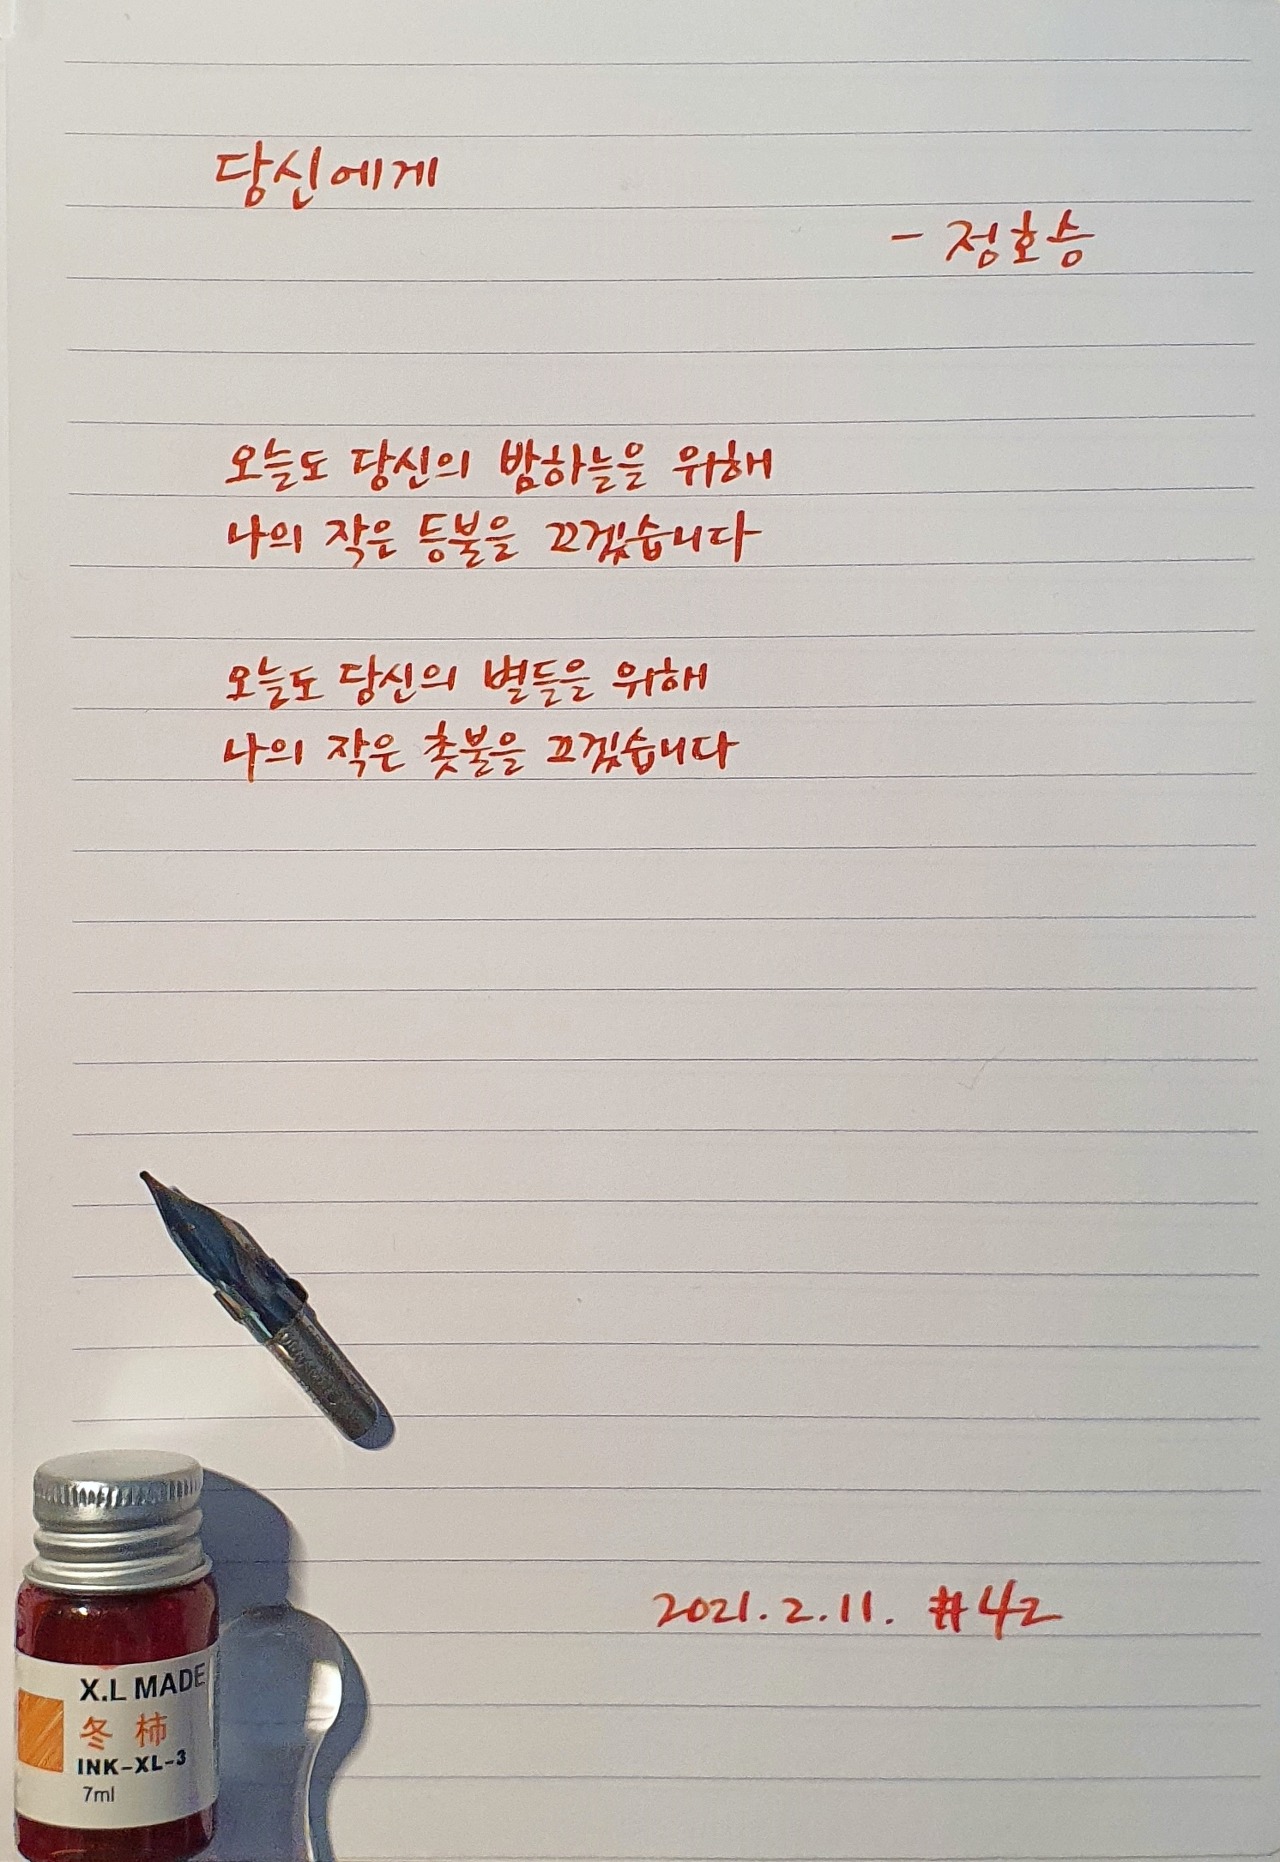 당신에게
- 정호승
오늘도 당신의 밤하늘을 위해
나의 작은 등불을 끄겠습니다
오늘도 당신의 별들을 위해
나의 작은 촛불을 끄겠습니다
2021. 2. 11. #42
X.L MADE
冬柿
INK-XL-3
7ml